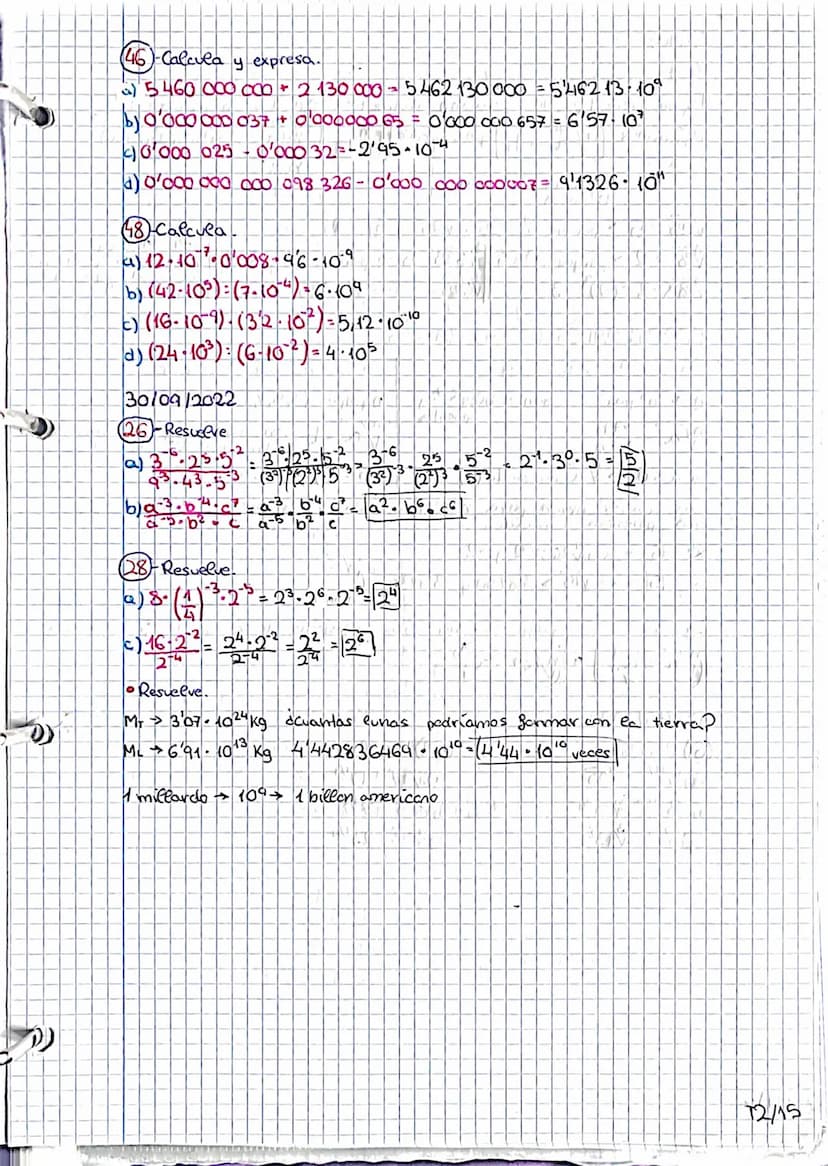 46-Calcula y expresa.
a) 5 460 000 000 + 2 130 000 = 5 462 130 000 = 5'46213·10⁹
b) 0'000 000 037 + 0'000000 65 = 0'000 000 657 = 6'57·10⁷
c) 0'000 025 - 0'000 32 = -2'95·10⁻⁴
d) 0'000 000 000 098 326 - 0'000 000 000007 = 9'1326·10¹¹
48-Calcula.
a) 12·10⁻⁷·0'008 = 9'6·10⁻⁹
b) (42·10⁵):(7·10⁻⁴) = 6·10⁹
c) (16·10⁻⁹)·(3'2·10⁻²) = 5,12·10⁻¹⁰
d) (24·10³):(6·10⁻²) = 4·10⁵
30/09/2022
26-Resuelve
a) 3⁻⁶·2⁵·5⁻²/9⁻³·4³·5⁻³ = 3⁻⁶·2⁵·5⁻²/(3²)⁻³·(2²)³·5⁻³ = 3⁻⁶/(3²)⁻³ · 2⁵/(2²)³ · 5⁻²/5⁻³ = 2⁻¹·3⁰·5 = 5/2
b) a⁻³·b⁻⁴·c⁷/a⁻⁵·b²·c = a⁻³/a⁻⁵ · b⁻⁴/b² · c⁷/c = a²·b⁶·c⁶
28-Resuelve.
a) 8·(1/4)⁻³·2⁻⁵ = 2³·2⁶·2⁻⁵ = 2⁴
c) 16·2⁻²/2⁻⁴ = 2⁴·2⁻²/2⁻⁴ = 2²/2⁻⁴ = 2⁶
• Resuelve.
MT → 3'07·10²⁴ kg ¿cuantas lunas podríamos formar con la tierra?
ML → 6'91·10¹³ Kg 4'442836469·10¹⁰ = 4'44·10¹⁰ veces
1 millardo → 10⁹ → 1 billon americano
T2/15